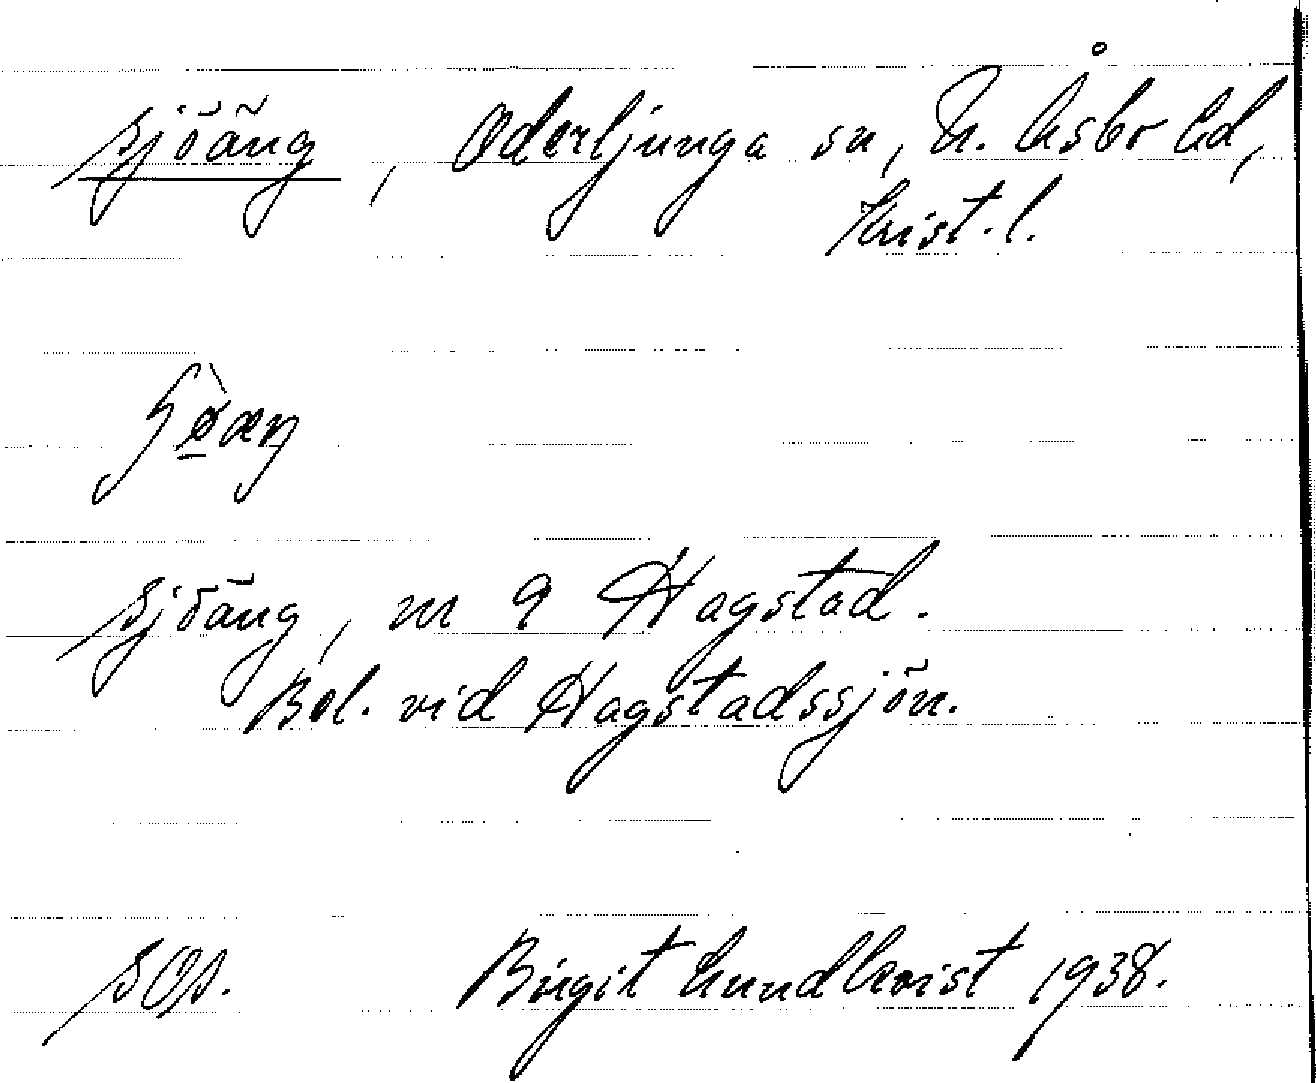 sjöäng, Oderljunga sn, N. Åsbo hd,
Krist. l.
sjöäng, m 9 Hagstad.
Bel. vid Hagstadssjön.
SOS. Birgit Lundkvist 1938.